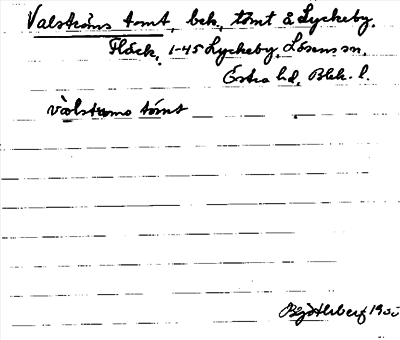 Valströms tomt, bek, tomt å Lyckeby.
Fläck, 1-45 Lyckeby, Lösens sn.
Östra hd, Blek. l.
valstroms tomt
1930